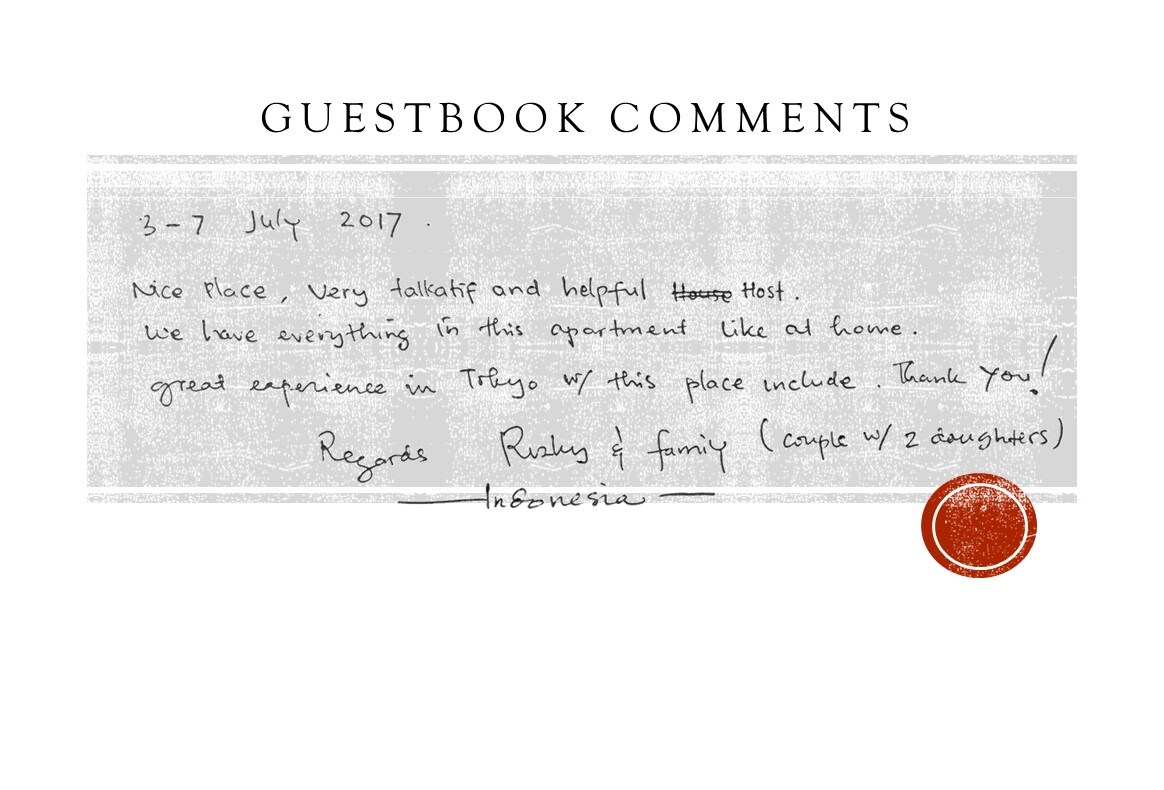 GUESTBOOK COMMENTS
3 - 7 July 2017 .
Nice Place, Very talkatif and helpful House Host.
We have everything in this apartment like at home.
great experience in Tokyo w/ this place include. Thank You!
Regards Rizky & famiy (couple w/ 2 daughters)
Indonesia